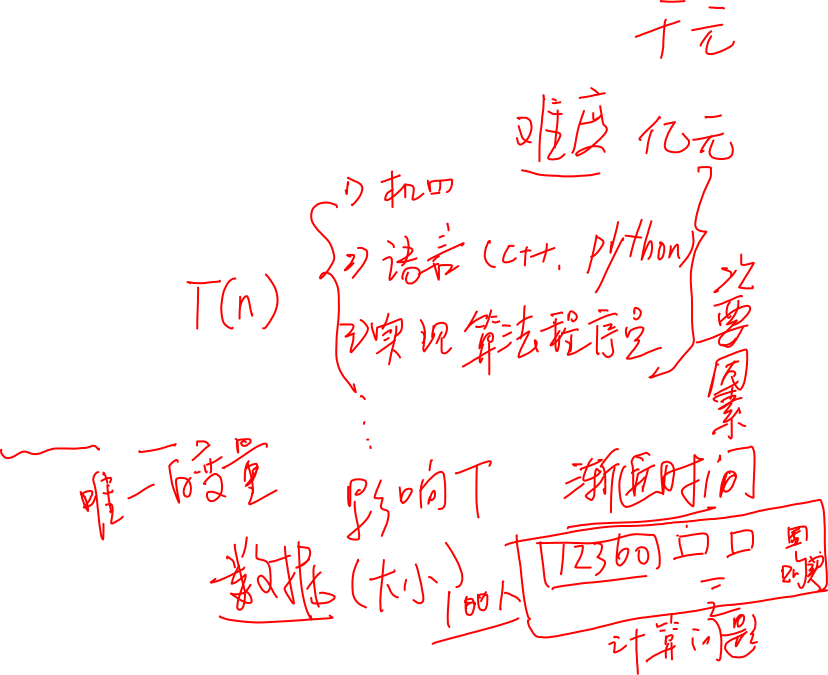 千元
难度 亿元
1) 机四
2) 语言 (c++, python)
3) 实现算法程序员
T(n)
次要因素
唯一的变量
影响T
渐近时间
数据(大小)
100人
12360
计算问题